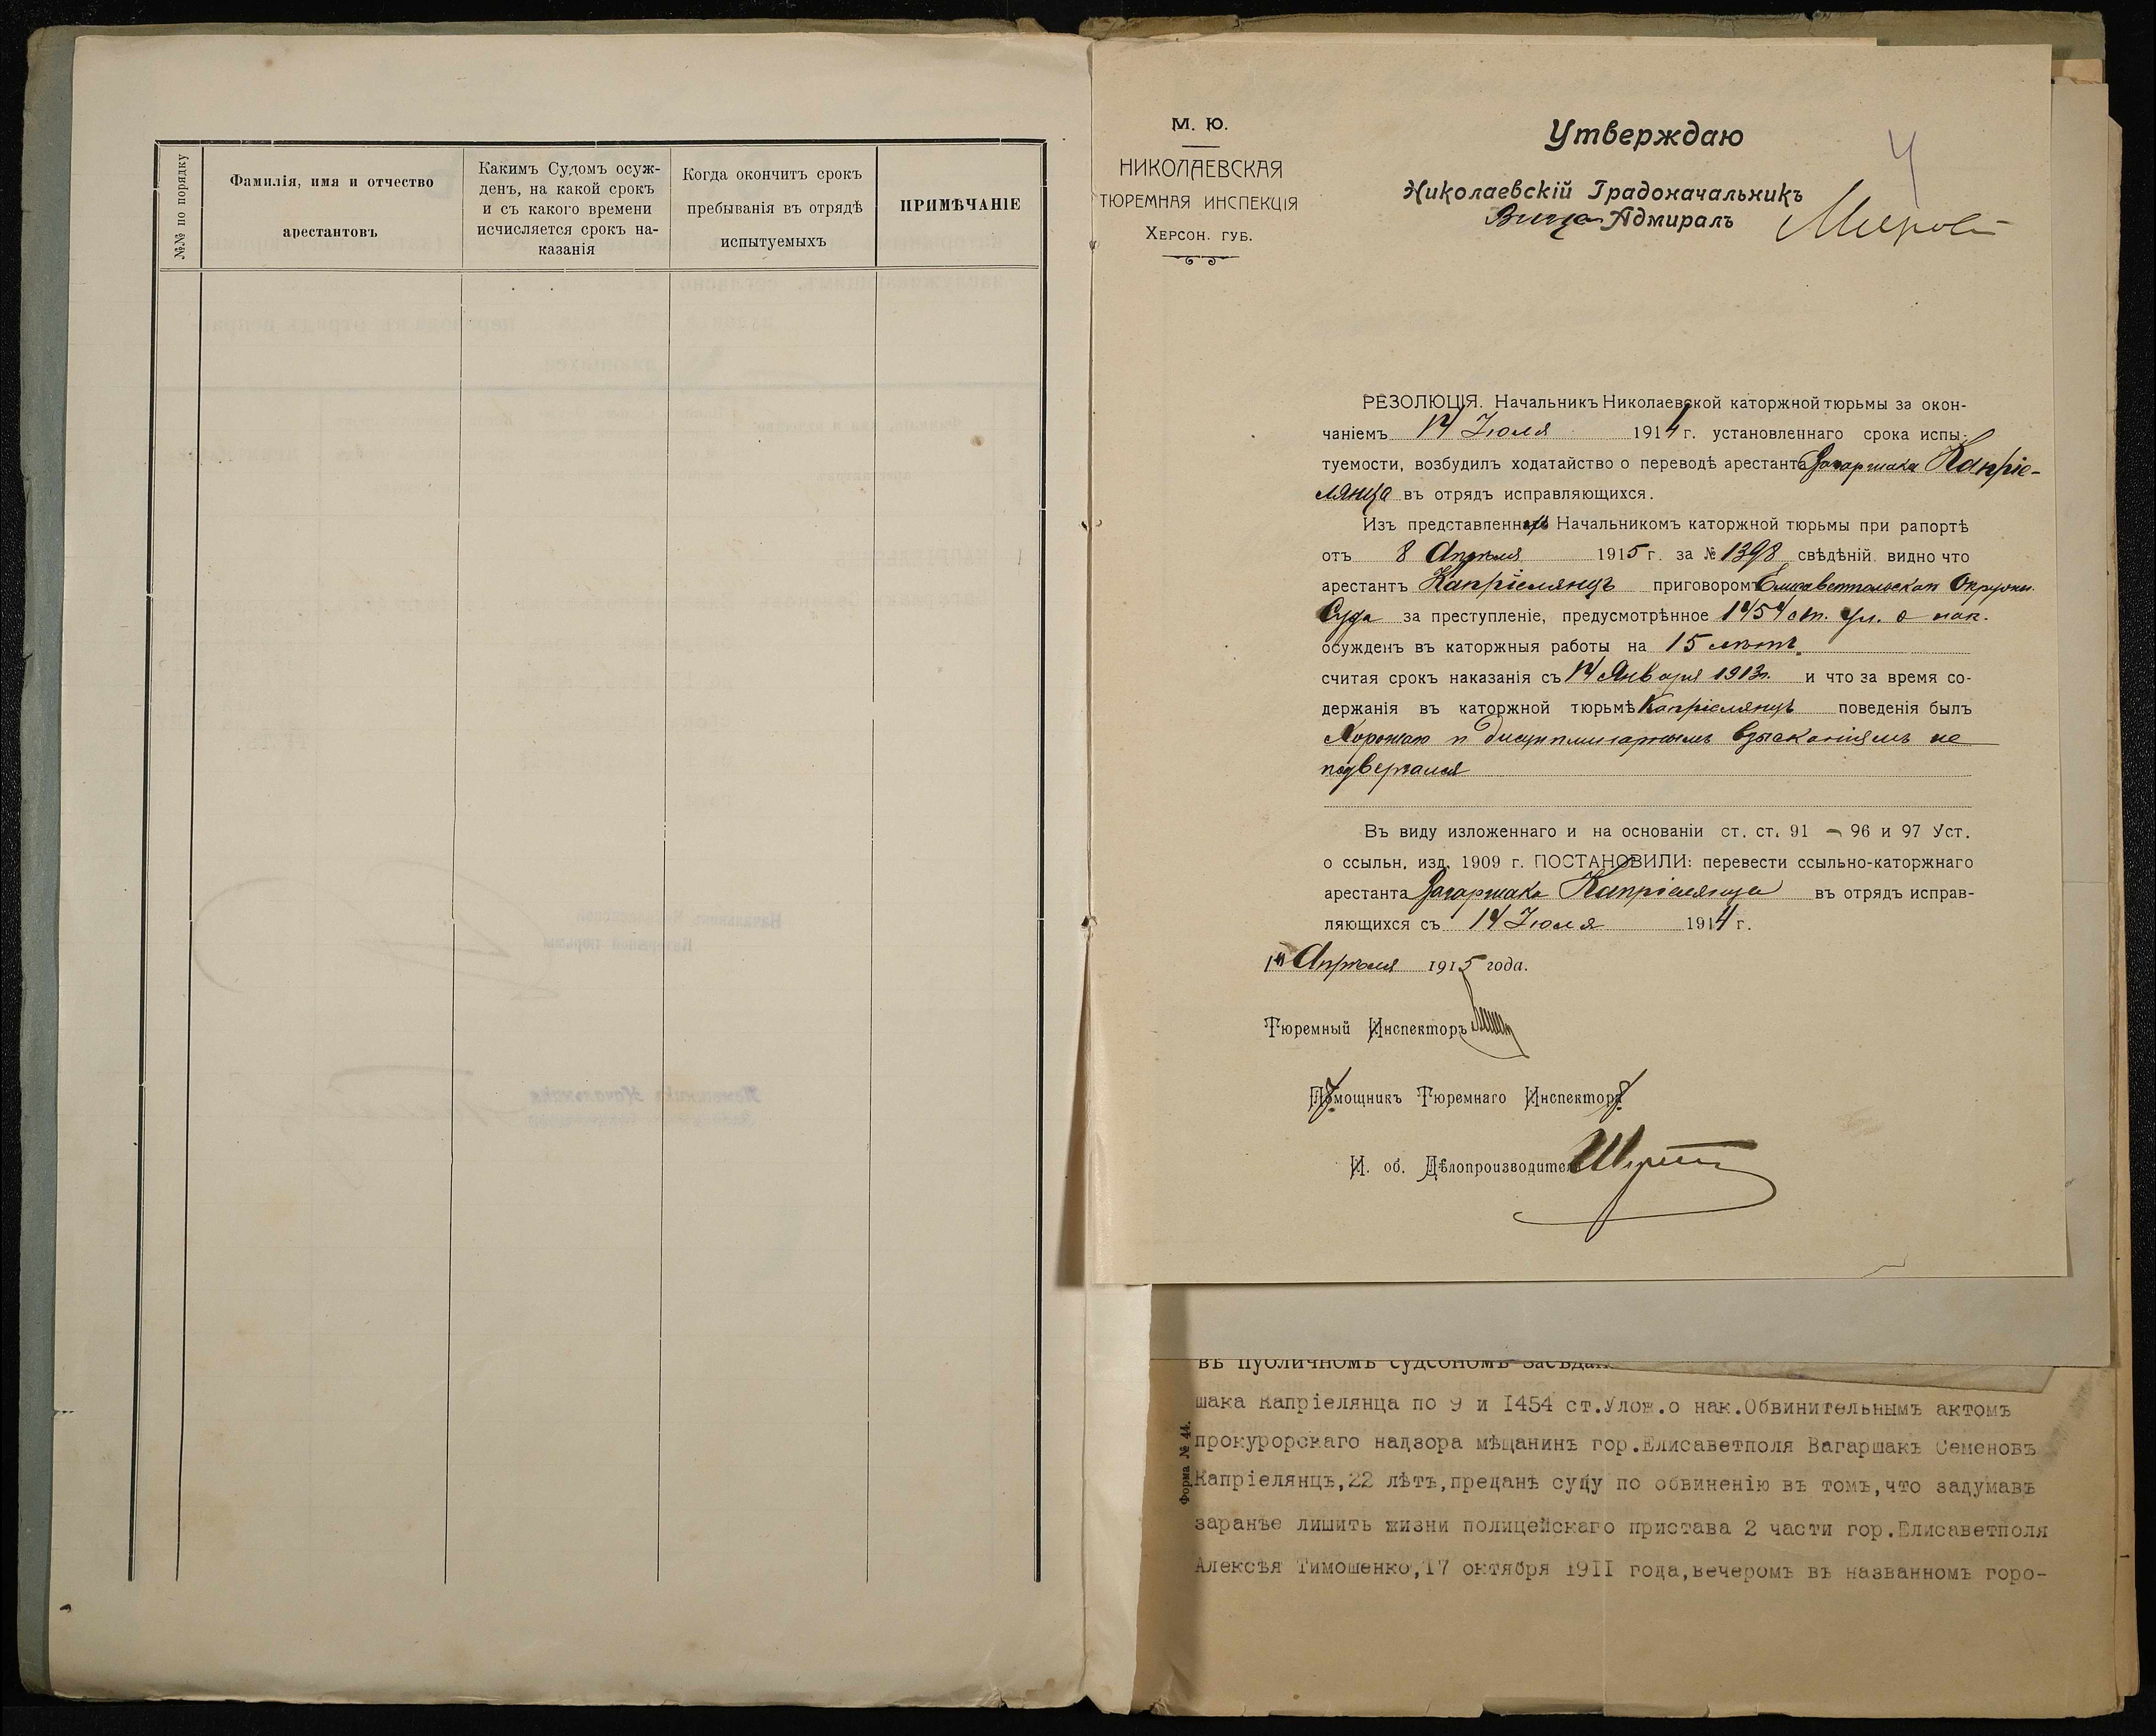 №№ по порядку
Фамилія, имя и отчество
арестантовъ
Какимъ Судомъ осуж-
денъ, на какой срокъ
и съ какого времени
исчисляется срокъ на-
казанія
Когда окончитъ срокъ
пребыванія въ отрядѣ
испытуемыхъ
ПРИМѢЧАНІЕ
М. Ю.
НИКОЛАЕВСКАЯ
ТЮРЕМНАЯ ИНСПЕКЦІЯ
ХЕРСОН. ГУБ.
Утверждаю
4
Николаевскій Градоначальникъ
Вице-Адмиралъ
РЕЗОЛЮЦІЯ. Начальникъ Николаевской каторжной тюрьмы за окон-
чаніемъ 14 Іюля 1914 г. установленнаго срока испы-
туемости, возбудилъ ходатайство о переводѣ арестанта Вагаршака Капріе-
лянца въ отрядъ исправляющихся.
Изъ представленныхъ Начальникомъ каторжной тюрьмы при рапортѣ
отъ 8 Апрѣля 1915 г. за № 1398 свѣдѣній видно что
арестантъ Капріелянцъ приговоромъ Елисаветпольскаго Окружн.
Суда за преступленіе, предусмотрѣнное 1454 ст. Ул. о нак.
осужденъ въ каторжныя работы на 15 лѣтъ
считая срокъ наказанія съ 14 Января 1913 г. и что за время со-
держанія въ каторжной тюрьмѣ Капріелянцъ поведенія былъ
хорошаго и дисциплинарнымъ взысканіямъ не
подвергался
Въ виду изложеннаго и на основаніи ст. ст. 91 – 96 и 97 Уст.
о ссыльн. изд. 1909 г. ПОСТАНОВИЛИ: перевести ссыльно-каторжнаго
арестанта Вагаршака Капріелянца въ отрядъ исправ-
ляющихся съ 14 Іюля 1914 г.
Апрѣля 1915 года.
Тюремный Инспекторъ
Помощникъ Тюремнаго Инспектора
И. об. Дѣлопроизводителя
въ публичномъ судсономъ засѣдан
шака Капріелянца по 9 и 1454 ст.Улож.о нак.Обвинительнымъ актомъ
прокурорскаго надзора мѣщанинъ гор.Елисаветполя Вагаршакъ Семеновъ
Капріелянцъ,22 лѣтъ,преданъ суду по обвиненію въ томъ,что задумавъ
заранѣе лишить жизни полицейскаго пристава 2 части гор.Елисаветполя
Алексѣя Тимошенко,17 октября 1911 года,вечеромъ въ названномъ горо-
Форма № 44.